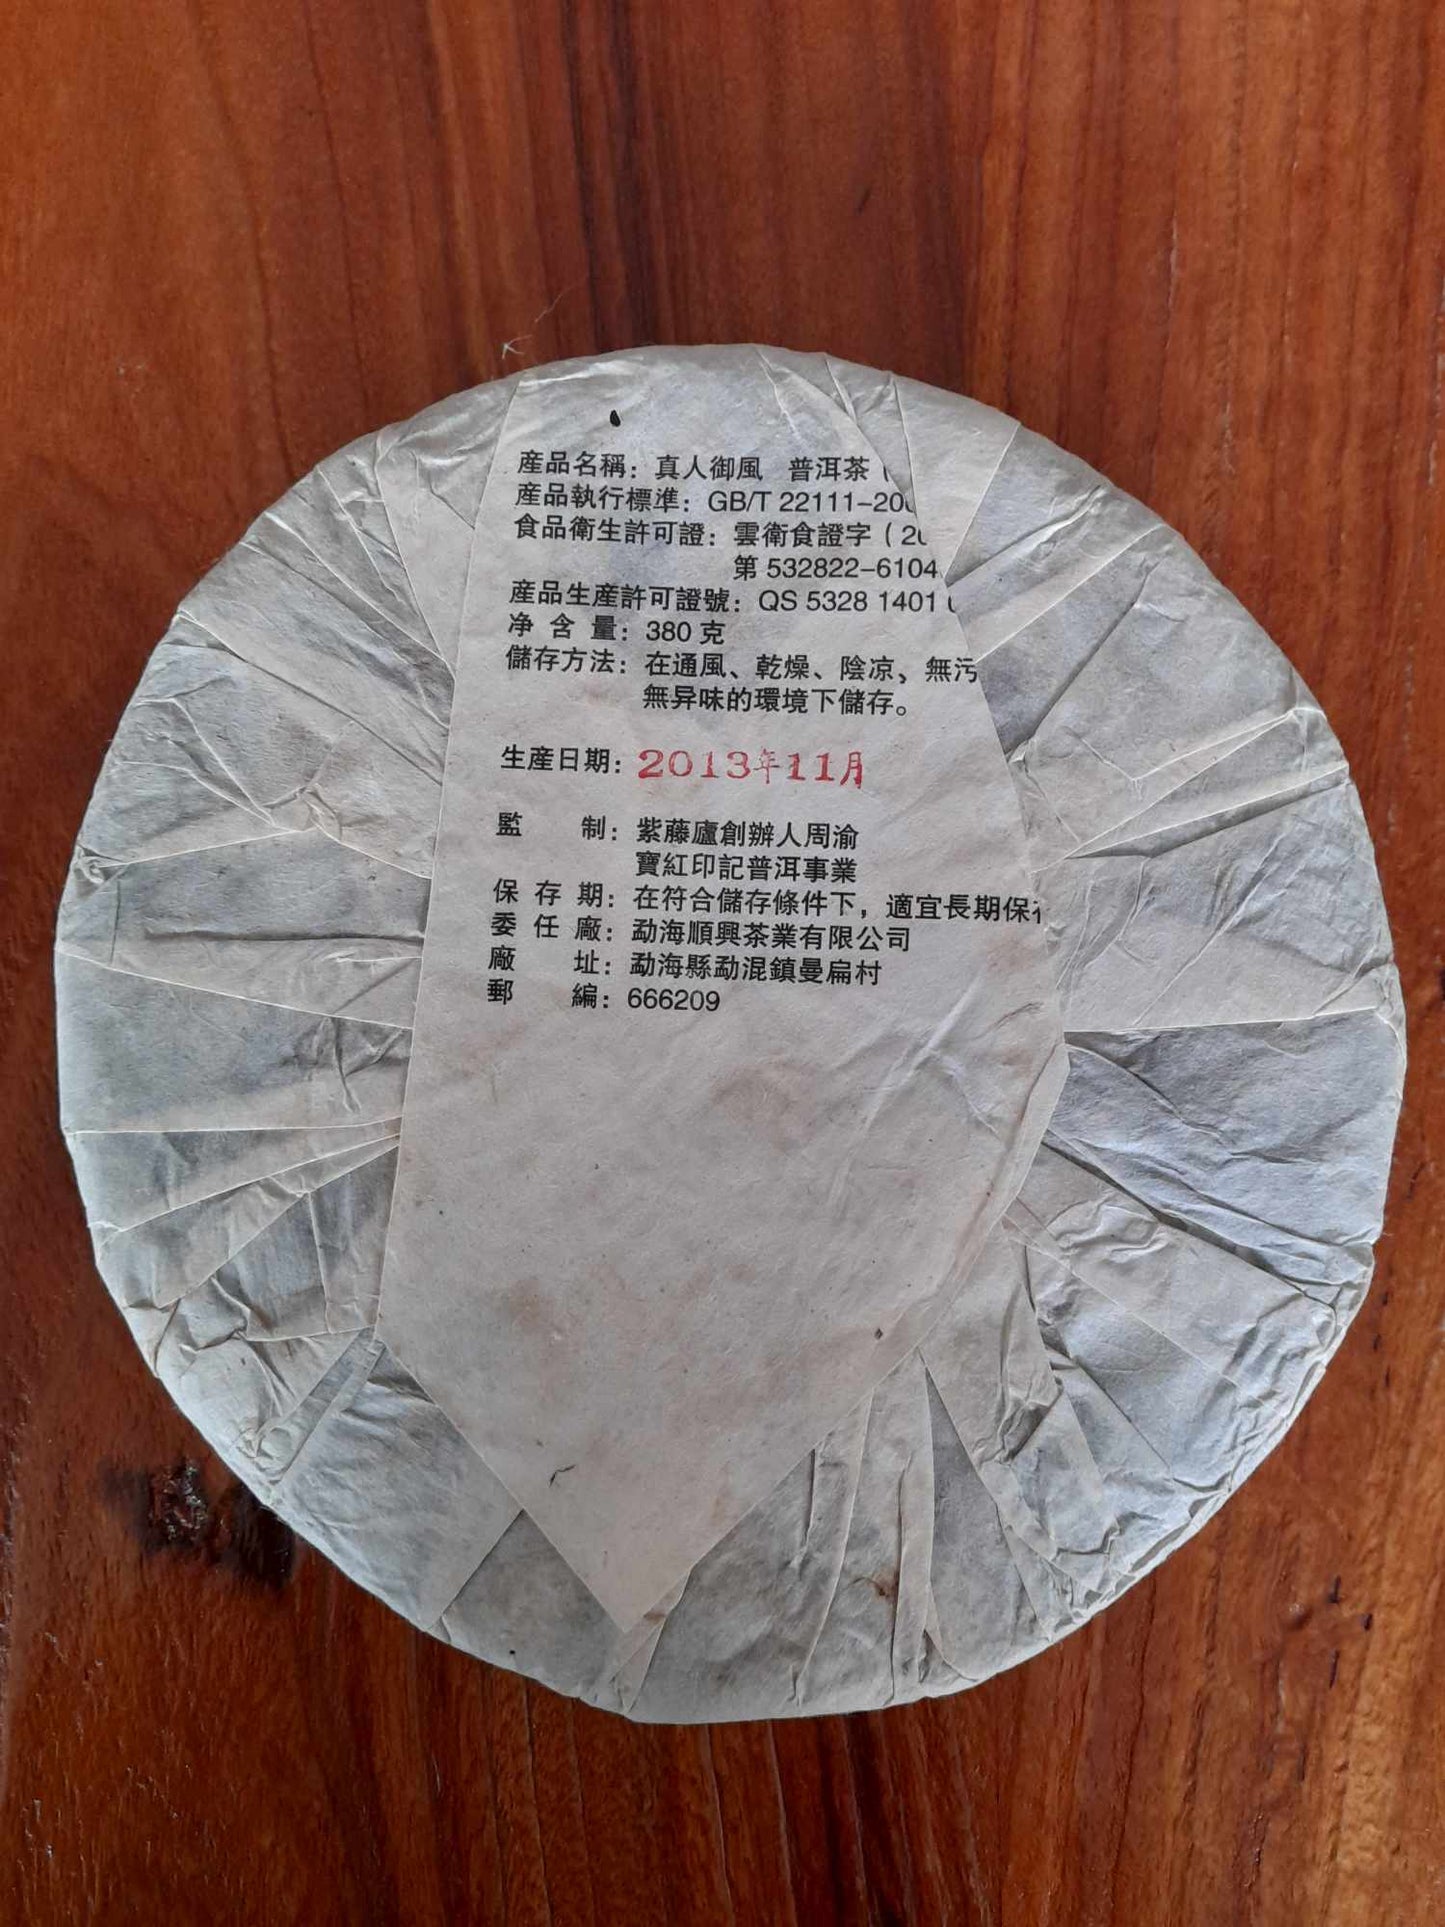 産品名稱：真人御風 普洱茶（
産品執行標準：GB/T 22111-200
食品衛生許可證：雲衛食證字（20
第 532822-6104
産品生産許可證號：QS 5328 1401 0
净含量：380 克
儲存方法：在通風、乾燥、陰凉、無污
無异味的環境下儲存。
生産日期：2013年11月
監制：紫藤廬創辦人周渝
寶紅印記普洱事業
保存期：在符合儲存條件下，適宜長期保存
委任廠：勐海順興茶業有限公司
廠址：勐海縣勐混鎮曼扁村
郵編：666209